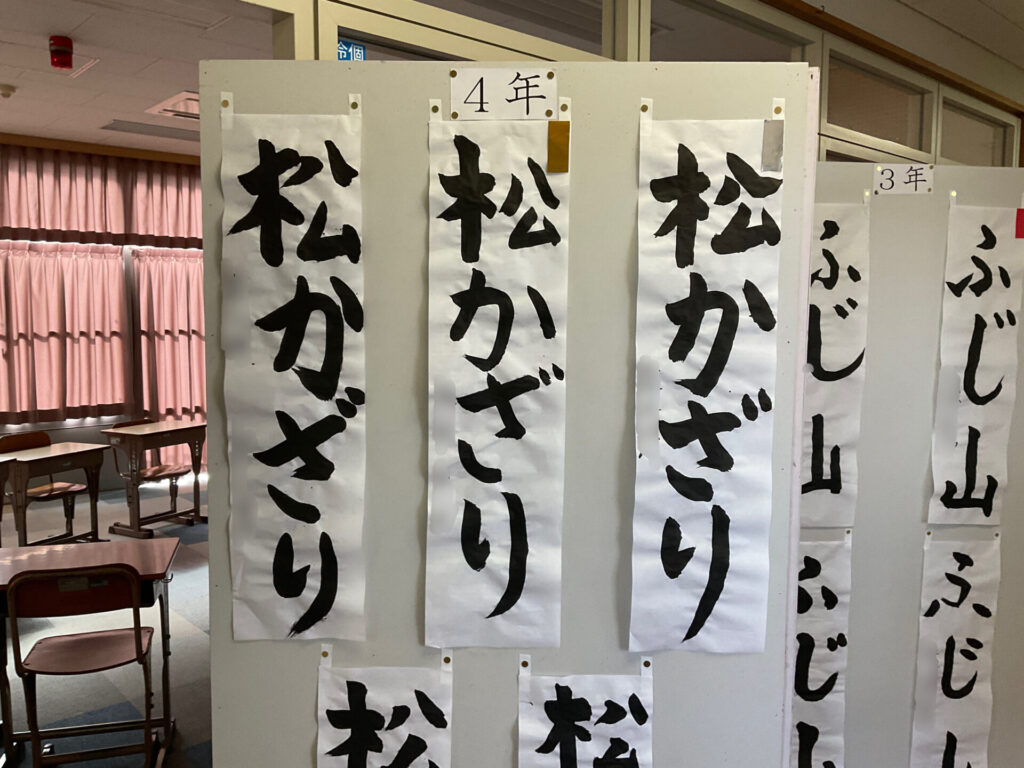 4年
松かざり
松かざり
松かざり
松
松
3年
ふじ山
ふじ山
ふじ
ふじ